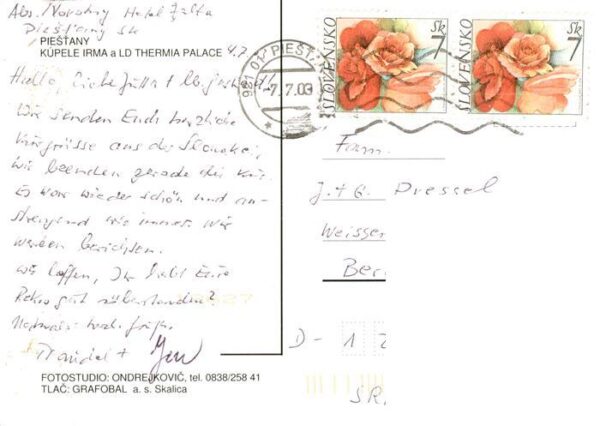 Abs. Novotny Hotel Jalta
Piešťany SK
PIEŠŤANY
KÚPELE IRMA a LD THERMIA PALACE
4.7.
Hallo, liebe Jutta +
Wir senden Euch herzliche
Kurgrüsse aus der Slowakei,
wir beenden gerade die Kur.
Es war wieder schön und an-
strengend wie immer. Wir
werden berichten.
Wir hoffen, Ihr habt Eure
Reko gut überstanden?
Nochmals herzl. Grüße
Traudel +
FOTOSTUDIO: ONDREJKOVIČ, tel. 0838/258 41
TLAČ: GRAFOBAL a. s. Skalica
921 01 PIEŠŤ
-7.7.03
SLOVENSKO
Sk
7
SLOVENSKO
Sk
7
Fam.
J.+G. Dressel
Weisser
Ber
D - 1 2